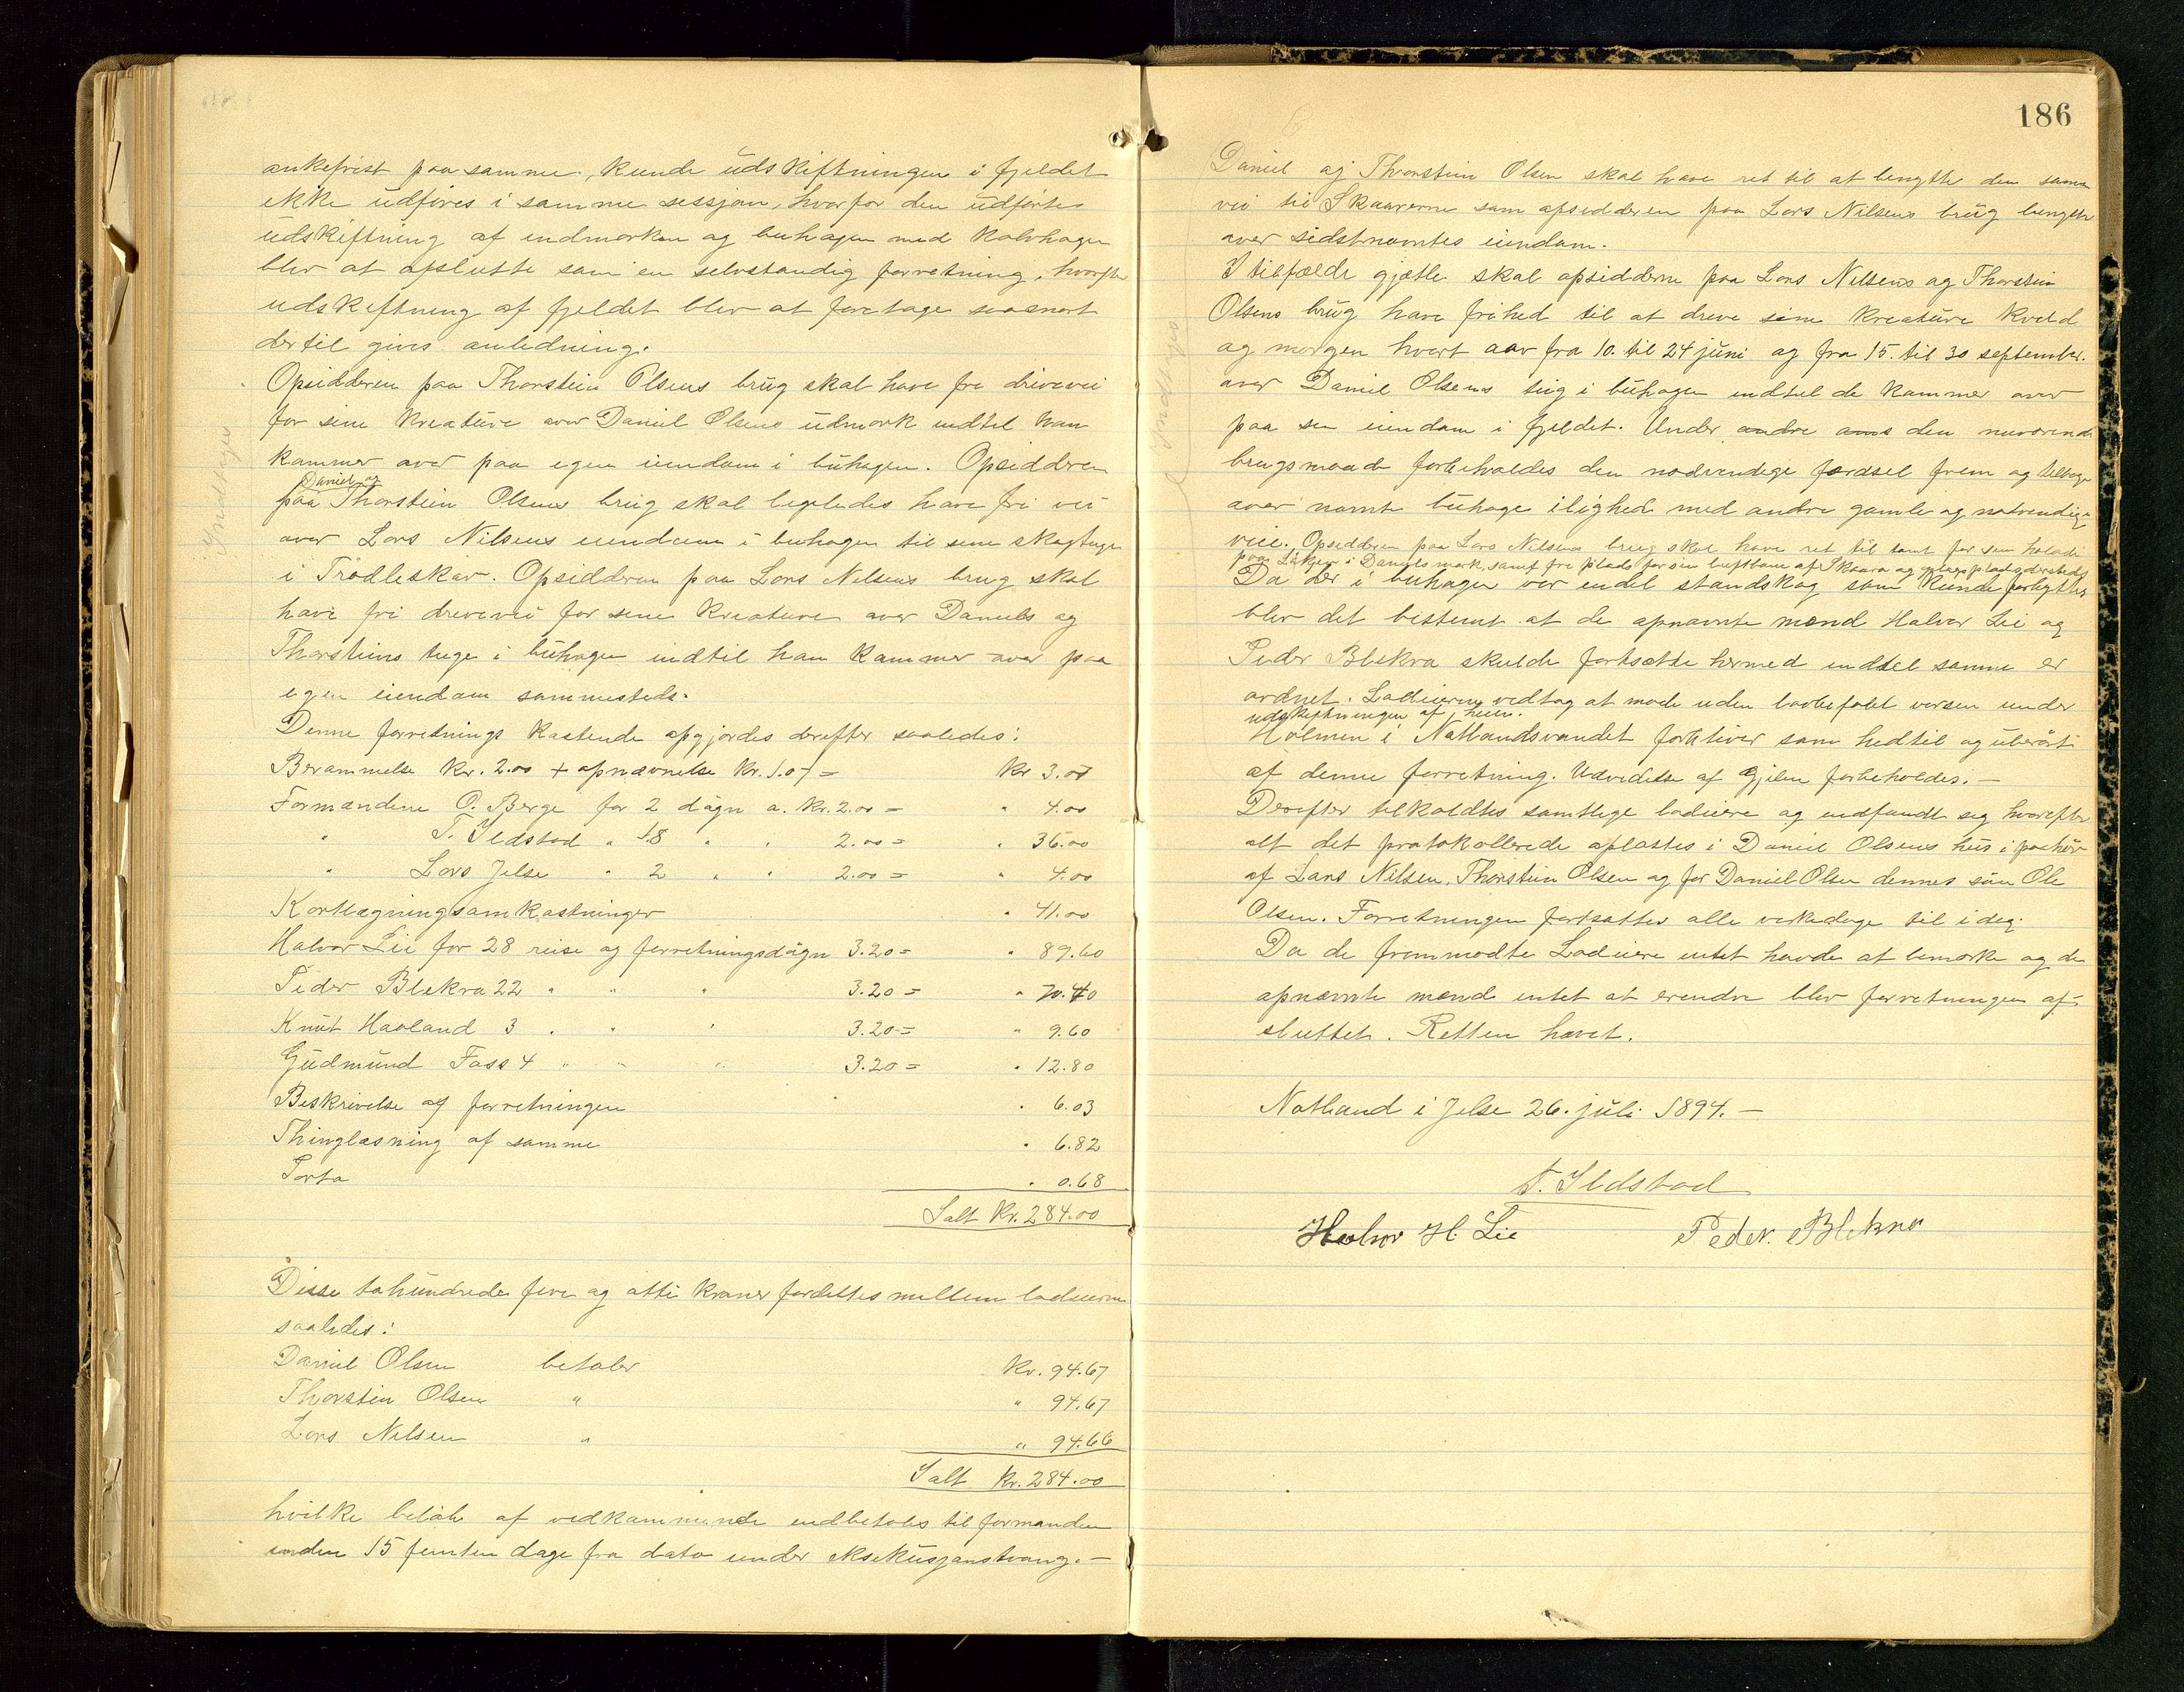 ankefrist paa samme, kunde udskiftningen i fjeldet
ikke udføres i samme sessjon, hvorfor den udførte
udskiftning af indmarken og buhagen med kalvhagen
blev at afslutte som en selvstændig forretning, hvorefter
udskiftning af fjeldet blev at foretage saasnart
dertil gives anledning.
Opsidderen paa Thorstein Olsens brug skal have fri drivevei
for sine kreature over Daniel Olsens udmark indtil han
kommer over paa egen eiendom i buhagen. Opsidderen
Daniel og
paa Thorstein Olsens brug skal ligeledes have fri vei
over Lars Nilsens eiendom i buhagen til sine skogteiger
i Trodleskar. Opsidderen paa Lars Nilsens brug skal
have fri drivevei for sine kreature over Daniels og
Thorsteins teige i buhagen indtil han kommer over paa
egen eiendom sammesteds.
Denne forretnings kostende opgjordes derefter saaledes:
Berammelse kr. 2.00 + opnævnelse kr. 1.07 = kr 3.07
Formændene O. Berge for 2 døgn a. kr. 2.00 = " 4.00
" T. Ildstad " 18 " " 2.00 = " 36.00
" Lars Jelse " 2 " " 2.00 = " 4.00
Kortlægningsomkostninger " 41.00
Halvor Lie for 28 reise og forretningsdøgn 3.20 = " 89.60
Peder Blekra 22 " " " 3.20 = " 70.40
Knut Haaland 3 " " " 3.20 = " 9.60
Gudmund Foss 4 " " " 3.20 = " 12.80
Beskrivelse af forretningen " 6.03
Thinglæsning af samme " 6.82
Porto " 0.68
Ialt Kr. 284.00
Disse tohundrede fire og otti kroner fordeltes mellem lodeierne
saaledes:
Daniel Olsen betaler Kr. 94.67
Thorstein Olsen " " 94.67
Lars Nilsen " " 94.66
Ialt Kr. 284.00
hvilke beløb af vedkommende indbetales til formanden
inden 15 femten dage fra dato under eksekusjonstvang. —
186
Daniel og Thorstein Olsen skal have ret til at benytte den samme
vei til Skaarerne som opsidderen paa Lars Nilsens brug benytter
over sidstnævntes eiendom.
I tilfælde gjætle skal opsidderne paa Lars Nilsens og Thorstein
Olsens brug have frihed til at drive sine kreature kveld
og morgen hvert aar fra 10. til 24 juni og fra 15. til 30 september.
over Daniel Olsens teig i buhagen indtil de kommer over
paa sin eiendom i fjeldet. Under andre den nuværende
brugsmaade forbeholdes den nødvendige færdsel frem og tilbage
over nævnte buhage ilighed med andre gamle og nødvendige
veie. Opsidderen paa Lars Nilsens brug skal have ret til tomt for sin
paa i Daniels mark, samt fri plads for sin af Skaara og
Da der i buhagen var endel standskog som kunde forbyttes
blev det bestemt at de opnævnte mænd Halvor Lie og
Peder Blekra skulde fortsætte hermed indtil samme er
ordnet. Lodeierne vedtog at møde uden lovbefalet varsel under
udskiftningen af heien.
Holmen i Natlandsvandet forbliver som hedtil og uberørt
af denne forretning. Udvidelse af Gjilen forbeholdes. —
Derefter tilkaldtes samtlige lodeiere og indfandt sig hvorefter
alt det protokollerede oplæstes i Daniel Olsens hus i paahør
af Lars Nilsen, Thorstein Olsen og for Daniel Olsen dennes søn Ole
Olsen. Forretningen fortsattes alle virkedage til idag.
Da de fremmødte Lodeiere intet havde at bemærke og de
opnævnte mænd intet at erindre blev forretningen af-
sluttet. Retten hævet.
Natland i Jelse 26. juli 1894. —
T. Ildstad
Halvor H. Lie Peder. Blekra